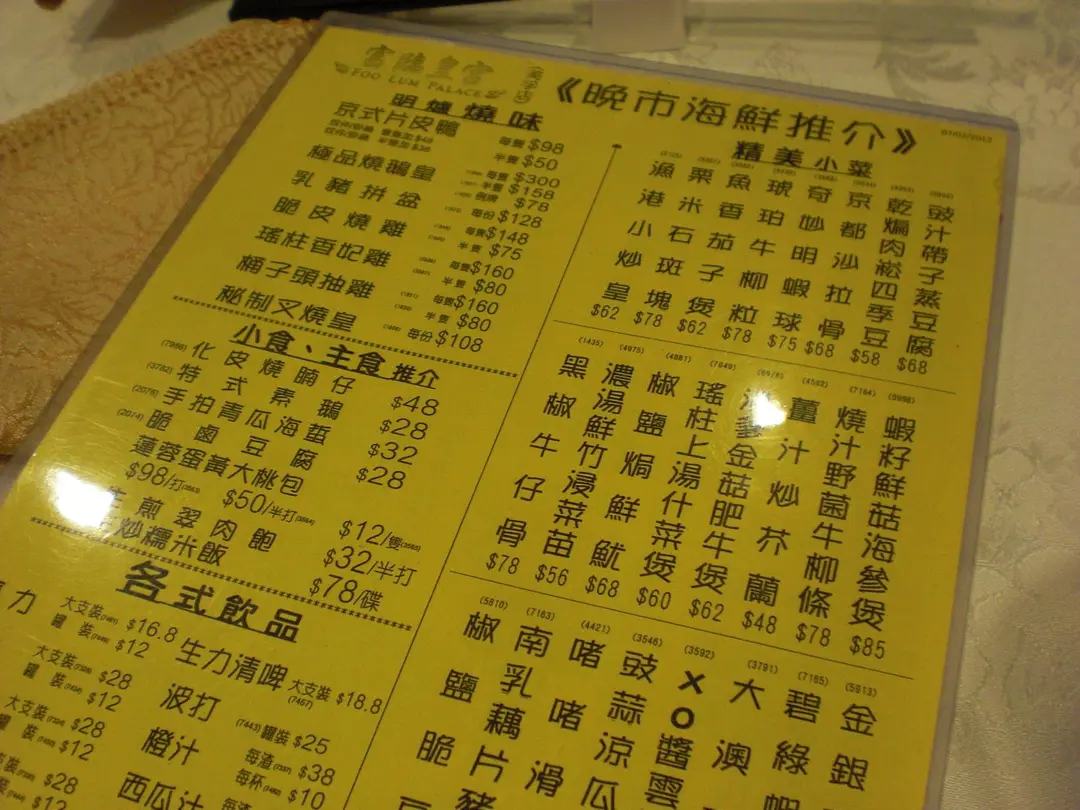 富臨皇宮
FOO LUM PALACE
明爐燒味
京式片皮鴨 每隻$98
半隻$50
極品燒鵝皇 每隻$300
半隻$158
例牌$78
乳豬拼盆 每份$128
脆皮燒雞 每隻$148
半隻$75
瑤柱香妃雞 每隻$160
半隻$80
桶子頭抽雞 每隻$160
半隻$80
秘制叉燒皇 每份$108
小食、主食推介
(7986) 化皮燒腩仔 $48
(3782) 特式素鵝 $28
(2078) 手拍青瓜海蜇 $32
(2074) 脆鹵豆腐 $28
蓮蓉蛋黃大桃包
$98/打 $50/半打 $12/隻
煎翠肉飽 $32/半打
炒糯米飯 $78/碟
各式飲品
力 大支裝 $16.8
罐裝 $12
生力清啤 大支裝 (7467) $18.8
大支裝 $28
罐裝 $12
波打 (7443) 罐裝 $25
大支裝 $28
罐裝 $12
橙汁 每渣 $38
每杯 $10
裝 $28
裝 $12
西瓜汁 每渣
《晚市海鮮推介》
精美小菜
豉汁帶子蒸豆腐 $68
乾煸肉崧四季豆 $58
京都沙拉骨 $68
奇妙明蝦球 $75
琥珀牛柳粒 $78
魚香茄子煲 $62
栗米石斑塊 $78
漁港小炒皇 $62
(5998) 蝦籽鮮菇海參煲 $85
(7164) 燒汁野菌牛柳條 $78
(4592) 薑汁炒芥蘭 $48
金菇肥牛煲 $62
(7649) 瑤柱上湯什菜煲 $60
(4881) 椒鹽焗鮮魷 $68
(4975) 濃湯鮮竹浸菜苗 $56
(1435) 黑椒牛仔骨 $78
(5913) 金銀
(7165) 碧綠蝦
(3791) 大澳
(3592) XO醬雲
(3546) 豉蒜涼瓜
(4421) 啫啫滑
(7163) 南乳藕片豬
(5810) 椒鹽脆豆